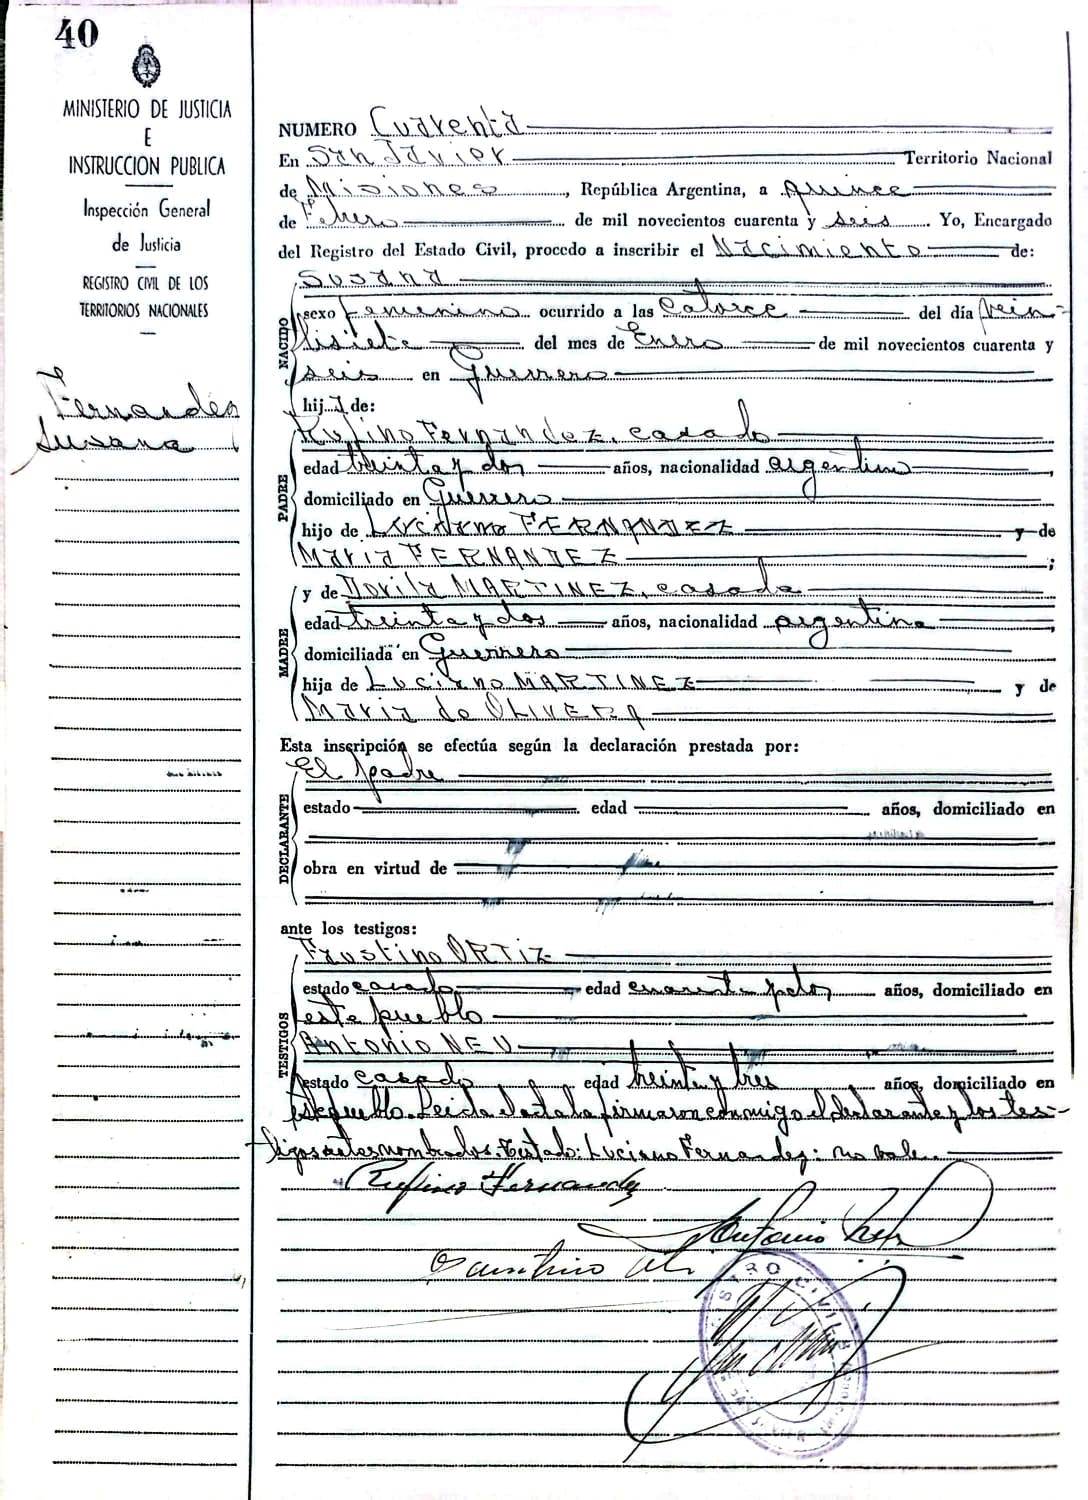 40
MINISTERIO DE JUSTICIA
E
INSTRUCCION PUBLICA
Inspección General
de Justicia
REGISTRO CIVIL DE LOS
TERRITORIOS NACIONALES
Fernandez
Susana
NUMERO Cuarenta
En San Javier Territorio Nacional
de Misiones, República Argentina, a quince
de de mil novecientos cuarenta y seis. Yo, Encargado
del Registro del Estado Civil, procedo a inscribir el Nacimiento de:
NACIDO
Susana
sexo femenino ocurrido a las catorce del día vein-
tisiete del mes de Enero de mil novecientos cuarenta y
seis en Guerrero
hija de:
PADRE
Rufino Fernandez, casado
edad treinta y dos años, nacionalidad argentino,
domiciliado en Guerrero
hijo de Luciano FERNANDEZ y de
Maria FERNANDEZ;
MADRE
y de Dorila MARTINEZ, casada
edad treinta y dos años, nacionalidad argentina,
domiciliada en Guerrero
hija de Luciano MARTINEZ y de
Maria de OLIVERA
Esta inscripción se efectúa según la declaración prestada por:
DECLARANTE
El padre
estado edad años, domiciliado en
obra en virtud de
ante los testigos:
TESTIGOS
Faustino ORTIZ
estado casado edad cuarenta años, domiciliado en
este pueblo
Antonio NEU
estado casado edad treinta y tres años, domiciliado en
este pueblo. Leida el acta la firmaron conmigo el declarante y los tes-
tigos antes nombrados. Testado: Luciano Fernandez: no vale.
Rufino Fernandez
Antonio
REGISTRO CIVIL
SAN JAVIER